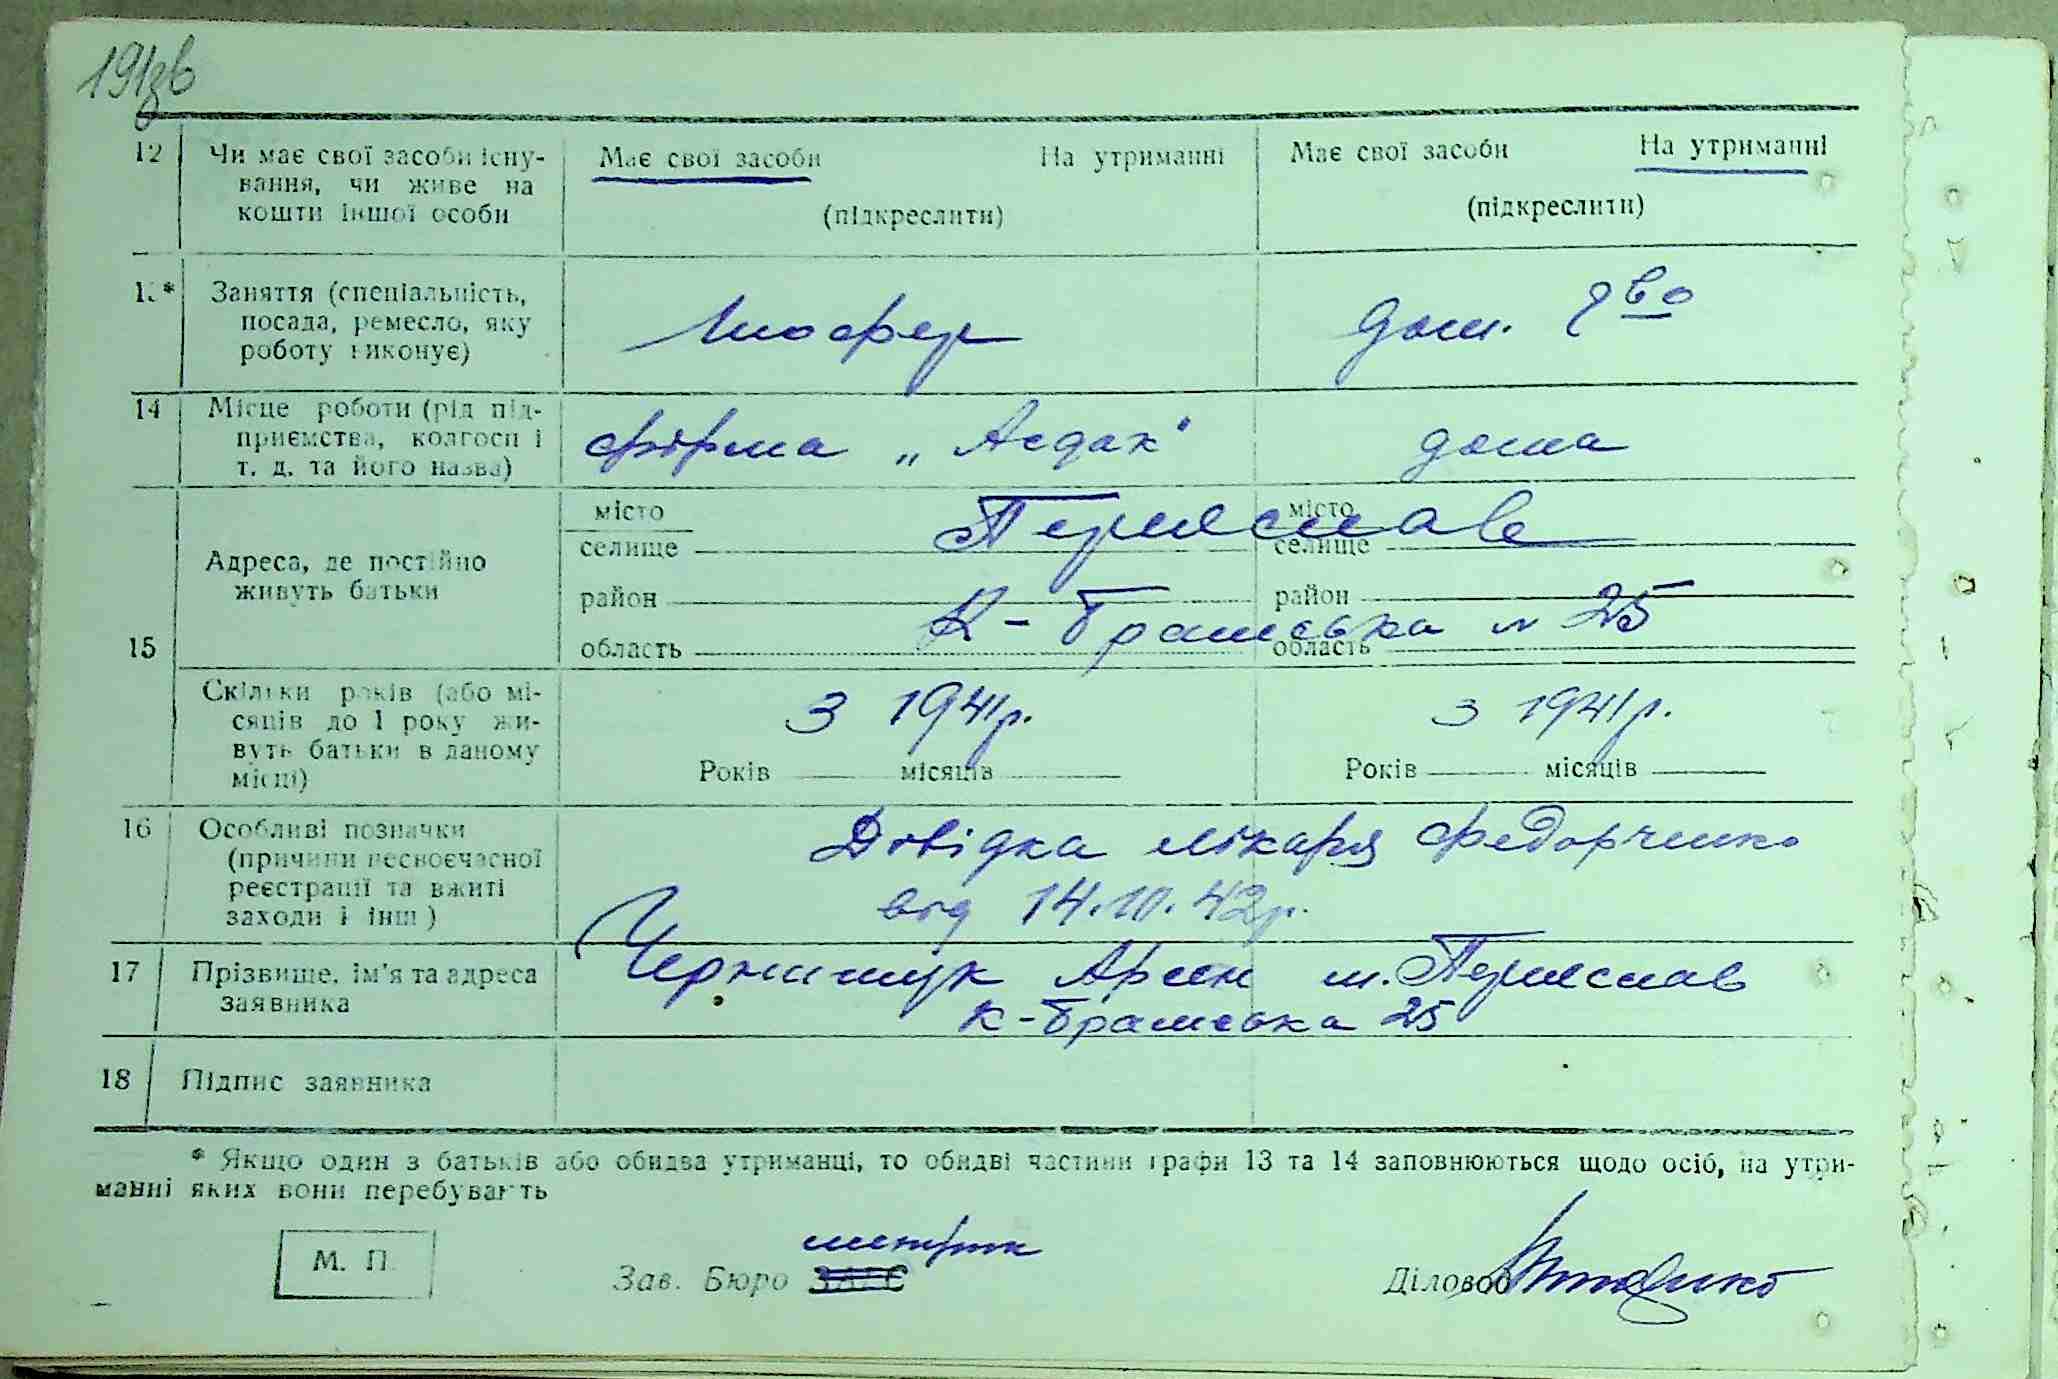 191зв
12 Чи має свої засоби існу- Має свої засоби На утриманні Має свої засоби На утриманні
вання, чи живе на
кошти іншої особи (підкреслити) (підкреслити)
13* Заняття (спеціальність,
посада, ремесло, яку Шофер дом. г-во
роботу виконує)
14 Місце роботи (рід під-
приємства, колгосп і фірма „Асдак" дома
т. д. та його назва)
місто місто
селище Переяслав селище
Адреса, де постійно
живуть батьки
район К-Брамська № 25 район
15 область область
Скільки років (або мі-
сяців до 1 року жи- З 1941р. З 1941р.
вуть батьки в даному
місці) Років місяців Років місяців
16 Особливі позначки Довідка лікаря Федорченко
(причини несвоєчасної
реєстрації та вжиті
заходи і інш) від 14.10.42р.
17 Прізвище, ім'я та адреса Чернишук Арсен м. Переяслав
заявника К-Брамська 25
18 Підпис заявника
* Якщо один з батьків або обидва утриманці, то обидві частини графи 13 та 14 заповнюються щодо осіб, на утри-
манні яких вони перебувають
метрик
М. П. Зав. Бюро ЗАГС Діловод